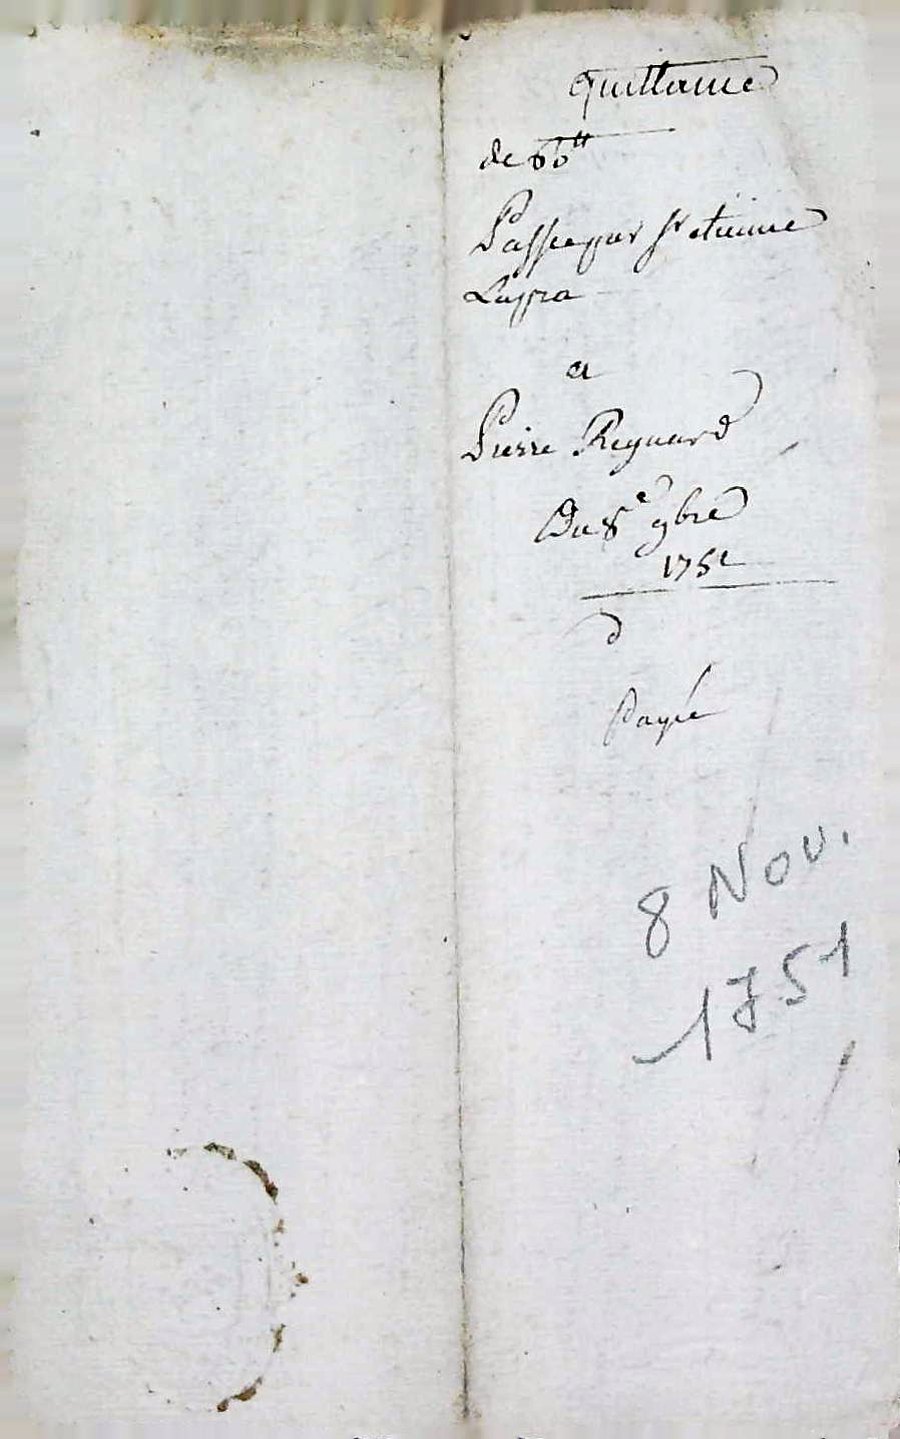 Quittance
de 66ᵗᵗ
Passée par Sʳ etienne
Lapra
a
Pierre Reynard
Du 8ᵉ 9bre
1751
Payé
8 Nov.
1751